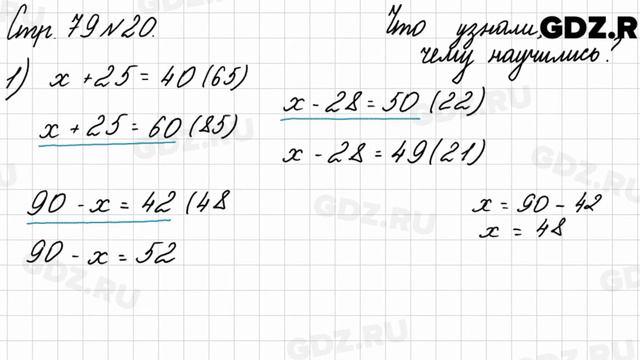 Стр. 79 №20.
Что узнали,
чему научились?
GDZ.R
1) x + 25 = 40 (65)
x + 25 = 60 (85)
x - 28 = 50 (22)
x - 28 = 49 (21)
90 - x = 42 (48
90 - x = 52
x = 90 - 42
x = 48
GDZ.RU
GDZ.RU
GDZ.RU
GDZ.RU
GDZ.RU